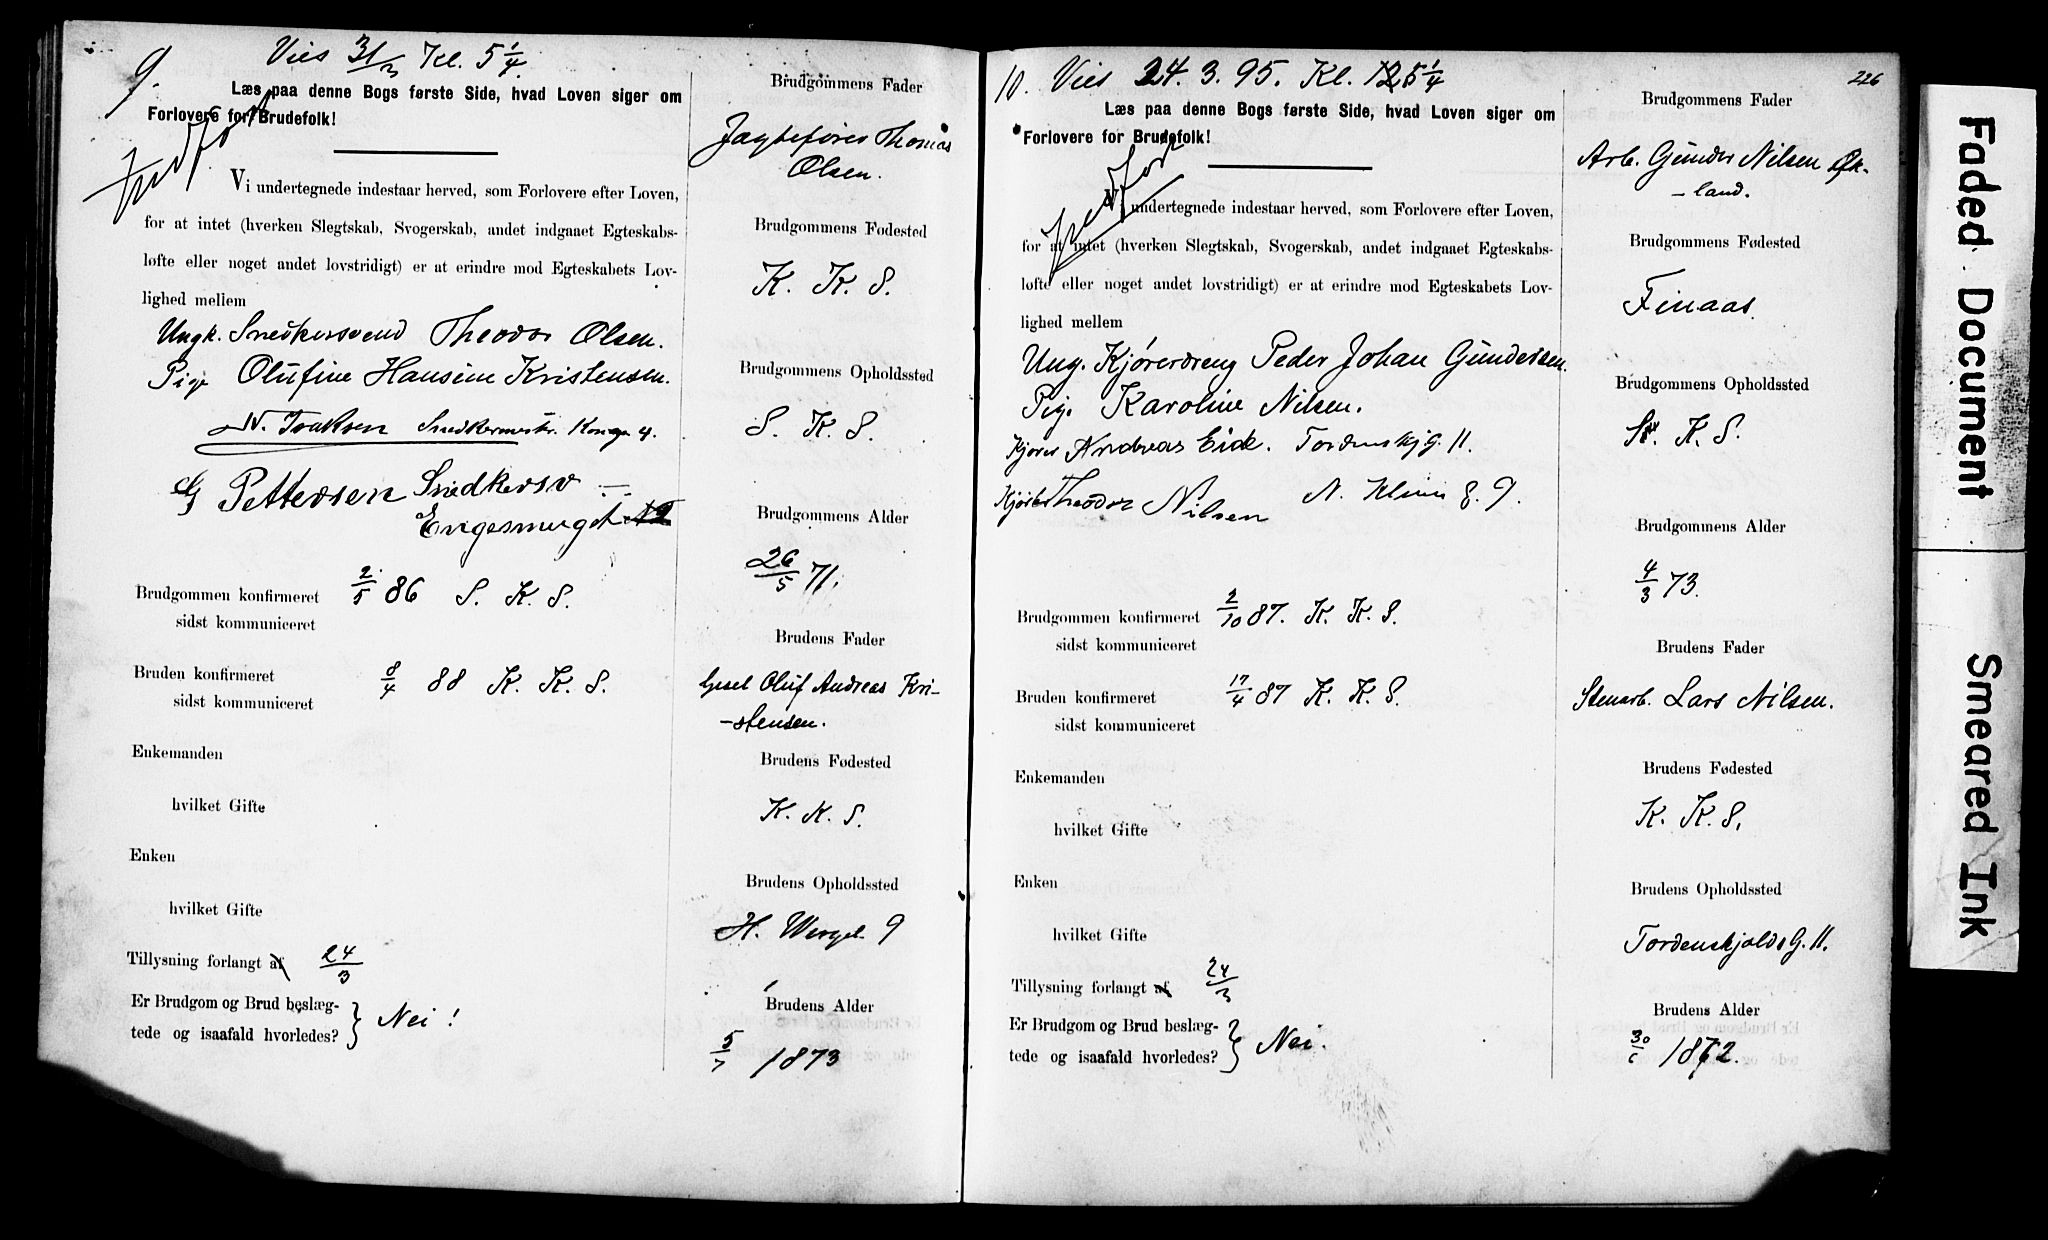 9.
Vies 31/3 Kl. 5 1/4.
Læs paa denne Bogs første Side, hvad Loven siger om
Forlovere for Brudefolk!
Indført
Vi undertegnede indestaar herved, som Forlovere efter Loven,
for at intet (hverken Slegtskab, Svogerskab, andet indgaaet Egteskabs-
løfte eller noget andet lovstridigt) er at erindre mod Egteskabets Lov-
lighed mellem
Ungk. Snedkersvend Theodor Olsen.
Pige Olufine Hansine Kristensen.
N. Isaksen Snedkermestr. Konge 4.
Pettersen Snedkersv
Engesmuget
Brudgommen konfirmeret 2/5 86 S. K. S.
sidst kommuniceret
Bruden konfirmeret 8/4 88 K. K. S.
sidst kommuniceret
Enkemanden
hvilket Gifte
Enken
hvilket Gifte
Tillysning forlangt af 24/3
Er Brudgom og Brud beslæg-
tede og isaafald hvorledes? } Nei!
Brudgommens Fader
Jagtefører Thomas
Olsen.
Brudgommens Fødested
K. K. S.
Brudgommens Opholdssted
S. K. S.
Brudgommens Alder
26/5 71.
Brudens Fader
Gesel Oluf Andreas Kri-
-stensen.
Brudens Fødested
K. K. S.
Brudens Opholdssted
H. Wergel. 9
Brudens Alder
5/7 1873
10. Vies 24. 3. 95. Kl. 5 1/4
226
Læs paa denne Bogs første Side, hvad Loven siger om
Forlovere for Brudefolk!
Indført
Vi undertegnede indestaar herved, som Forlovere efter Loven,
for at intet (hverken Slegtskab, Svogerskab, andet indgaaet Egteskabs-
løfte eller noget andet lovstridigt) er at erindre mod Egteskabets Lov-
lighed mellem
Ung. Kjøredreng Peder Johan Gundersen.
Pige Karoline Nilsen.
Kjører Andreas Eide. Tordenskj.G. 11.
Kjører Theodor Nilsen N. Klims g. 9.
Brudgommen konfirmeret 2/10 87. K. K. S.
sidst kommuniceret
Bruden konfirmeret 17/4 87 K. K. S.
sidst kommuniceret
Enkemanden
hvilket Gifte
Enken
hvilket Gifte
Tillysning forlangt af 24/3
Er Brudgom og Brud beslæg-
tede og isaafald hvorledes? } Nei.
Brudgommens Fader
Arb. Gunder Nilsen Øk-
-land.
Brudgommens Fødested
Finaas.
Brudgommens Opholdssted
K. S.
Brudgommens Alder
4/3 73.
Brudens Fader
Stenarb. Lars Nilsen.
Brudens Fødested
K. K. S.
Brudens Opholdssted
TordenskjoldsG. 11.
Brudens Alder
30/6 1872.
Faded Document
Smeared Ink